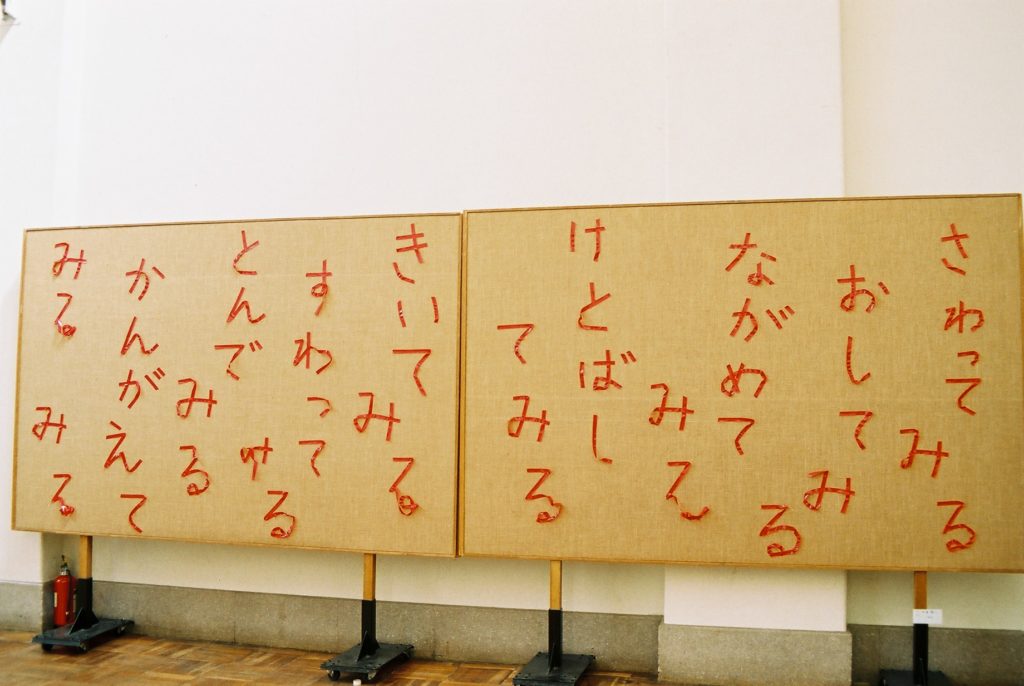 さわって
みる
おして
みる
ながめて
みる
けとばし
てみる
きいて
みる
すわって
みる
とんで
みる
かんがえて
みる みる